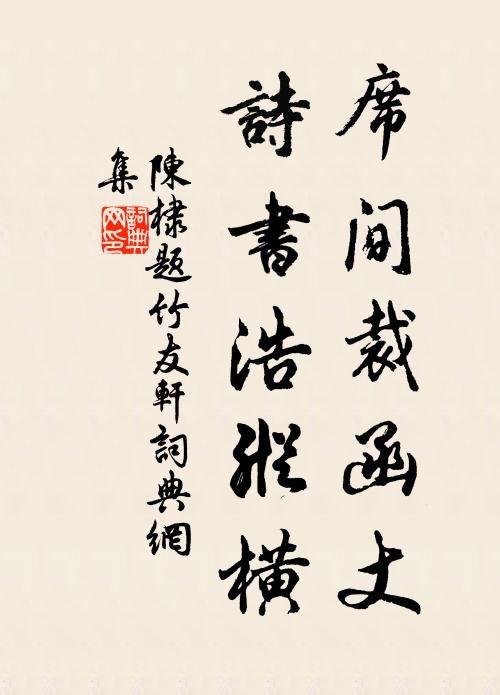 席間裁函丈
詩書浩縱橫
陳棣題竹友軒詞典網
集
詞典網印